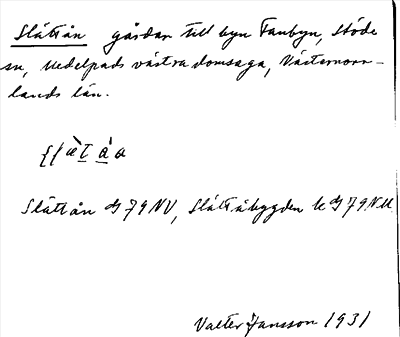 Slättån gårdar till byn Fanbyn, Stöde
sn, Medelpads västra domsaga, Västernorr-
lands län.
Slättån dg 79 NV, Slättåbygden k dg 79 NV
Valter Jansson 1931